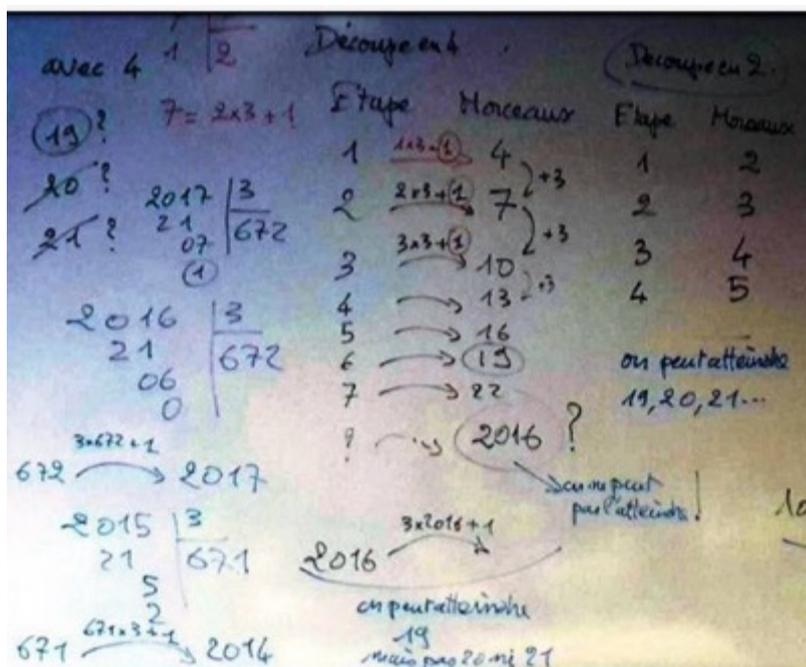 avec 4
1 | 2
7 = 2x3+1
19 ?
20 ?
21 ?
2017 | 3
21 672
07
1
2016 | 3
21 672
06
0
3x672+1
672 → 2017
2015 | 3
21 671
5
2
671x3+1
671 → 2014
Découpe en 4
Etape Morceaux
1 1x3+1 4
+3
2 2x3+1 7
+3
3 3x3+1 10
+3
4 → 13
5 → 16
6 → 19
7 → 22
? → 2016 ?
on ne peut
pas l'atteindre !
3x2016+1
2016 →
on peut atteindre
19
mais pas 20 ni 21
Découpe en 2
Etape Morceaux
1 2
2 3
3 4
4 5
on peut atteindre
19, 20, 21...
10